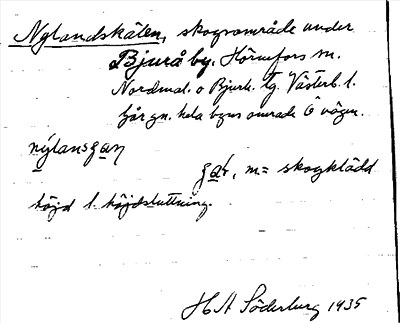 Nylandskälen, skogsområde under
Bjurå by. Hörnefors sn.
Nordmal. o Bjurh. tg. Västerb. l.
Går gn. hela byns område Ö vägen.
nýlansgaɳ
gaɫ, m = skogklädd
höjd l. höjdsluttning.
H A Söderberg 1935